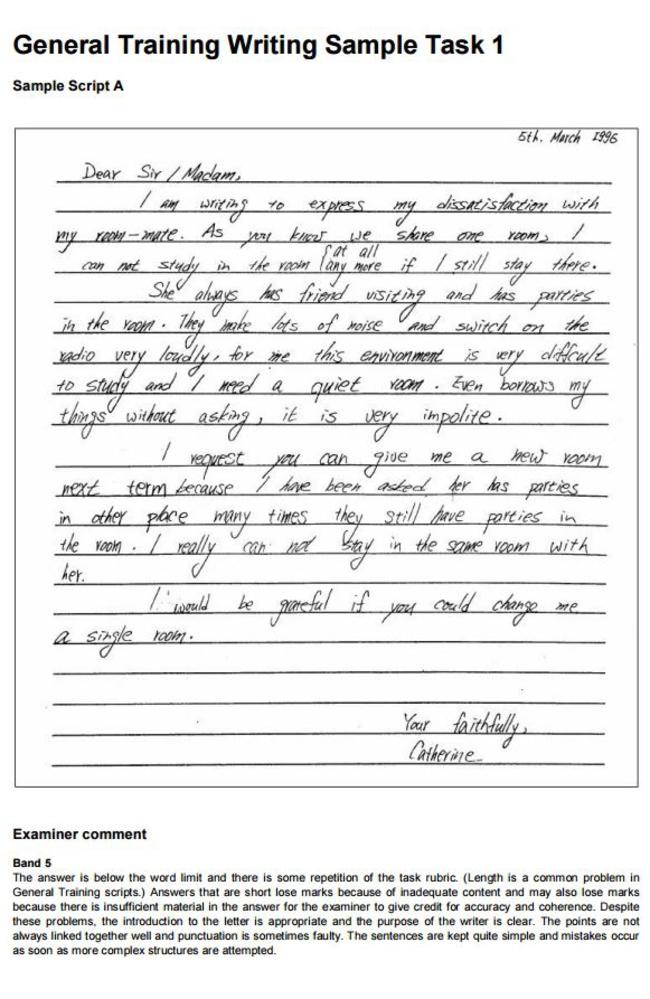 General Training Writing Sample Task 1
Sample Script A
5th. March 1996
Dear Sir / Madam,
I am writing to express my dissatisfaction with
my room-mate. As you know we share one room, I
can not study in the room {at all any more if I still stay there.
She always has friend visiting and has parties
in the room. They make lots of noise and switch on the
radio very loudly, for me this environment is very difficult
to study and I need a quiet room. Even borrows my
things without asking, it is very impolite.
I request you can give me a new room
next term because I have been asked her has parties
in other place many times they still have parties in
the room. I really can not stay in the same room with
her.
I would be grateful if you could change me
a single room.
Your faithfully,
Catherine
Examiner comment
Band 5
The answer is below the word limit and there is some repetition of the task rubric. (Length is a common problem in
General Training scripts.) Answers that are short lose marks because of inadequate content and may also lose marks
because there is insufficient material in the answer for the examiner to give credit for accuracy and coherence. Despite
these problems, the introduction to the letter is appropriate and the purpose of the writer is clear. The points are not
always linked together well and punctuation is sometimes faulty. The sentences are kept quite simple and mistakes occur
as soon as more complex structures are attempted.